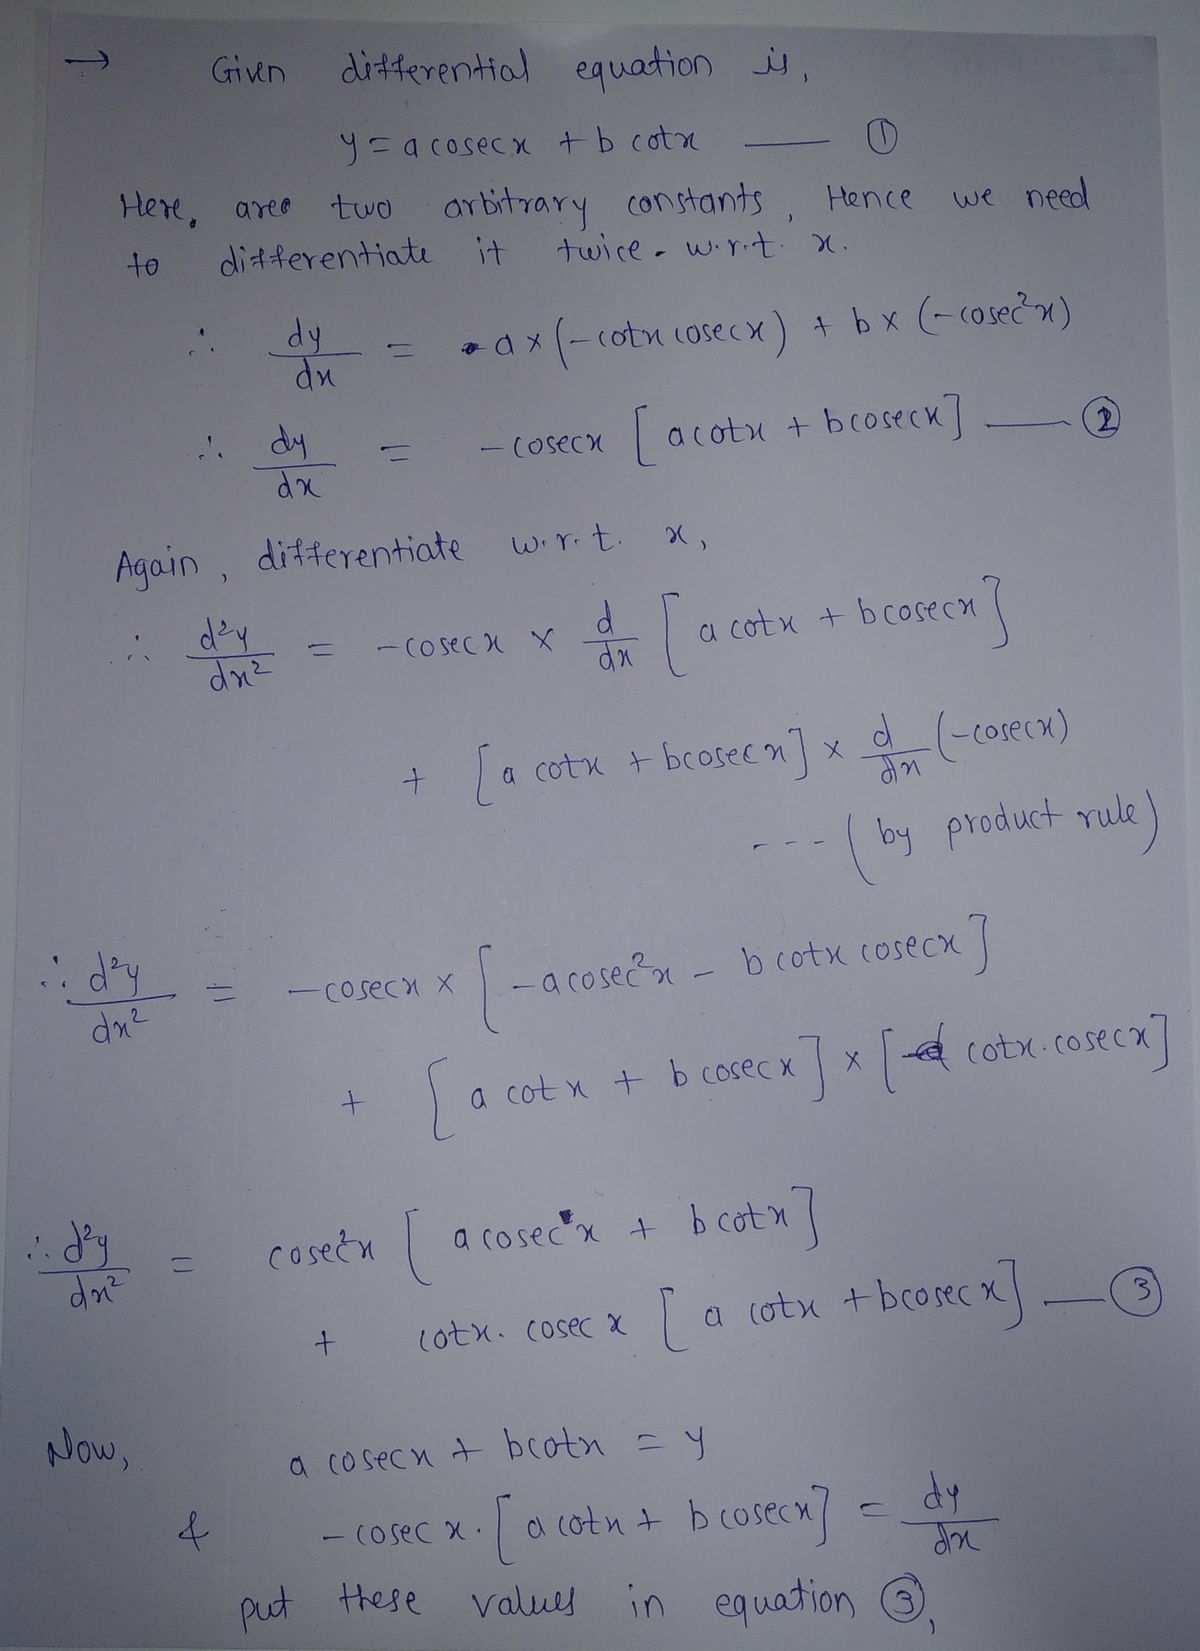 → Given differential equation is,
y = a cosec x + b cot x —— ①
Here, are two arbitrary constants, Hence we need
to differentiate it twice. w.r.t. x.
∴ dy/dx = a × (-cot x cosec x) + b × (-cosec²x)
∴ dy/dx = -cosec x [a cot x + b cosec x] —— ②
Again, differentiate w.r.t. x,
∴ d²y/dx² = -cosec x × d/dx [a cot x + b cosec x]
+ [a cot x + b cosec x] × d/dx (-cosec x)
--- (by product rule)
∴ d²y/dx² = -cosec x × [-a cosec²x - b cot x cosec x]
+ [a cot x + b cosec x] × [cot x. cosec x]
∴ d²y/dx² = cosec²x [a cosec x + b cot x]
+ cot x. cosec x [a cot x + b cosec x] —— ③
Now, a cosec x + b cot x = y
& -cosec x. [a cot x + b cosec x] = dy/dx
put these values in equation ③,